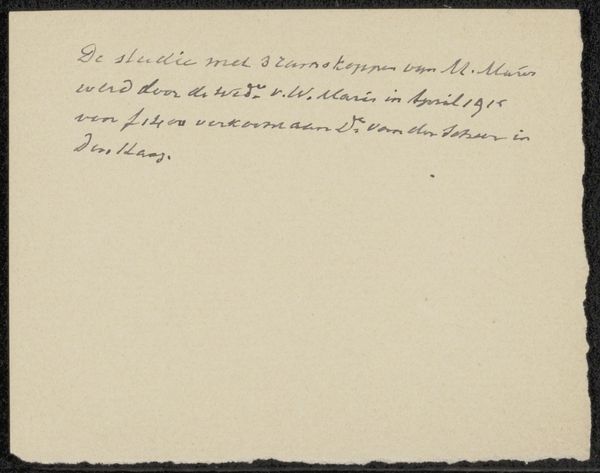 De studie met 3 ramskoppen van M. Maris
werd door de wed.e v. W. Maris in April 1915
voor f 1400 verkocht aan Dr. van der Scheer in
Den Haag.